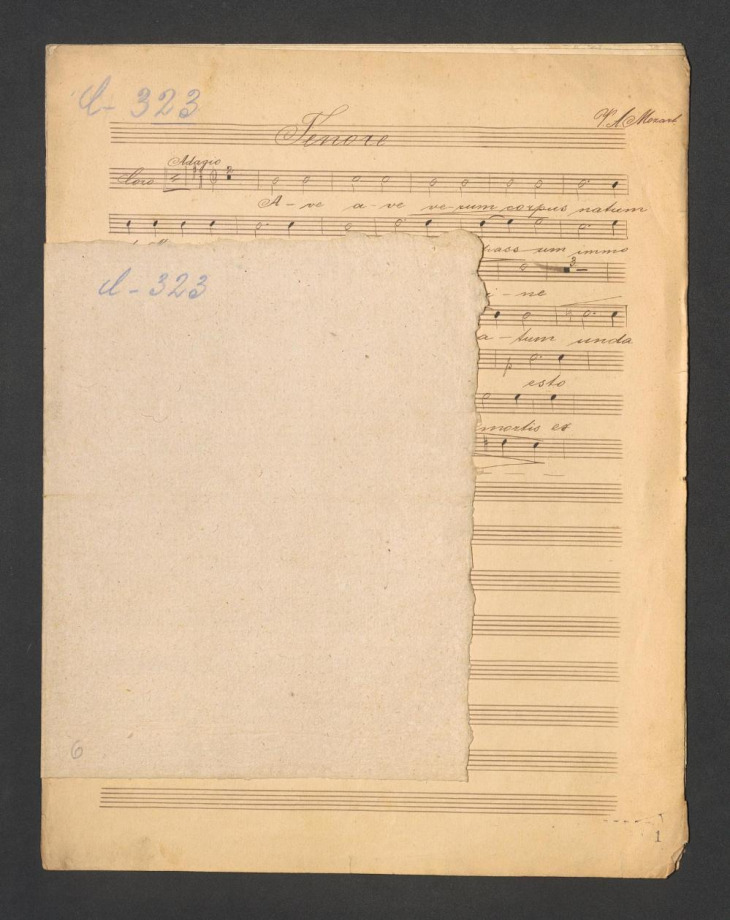 Cl-323
Tenore
W A Mozart
Adagio
Coro
A-ve a-ve ve-rum corpus natum
pass um immo
ne
a-tum unda
esto
mortis et
Cl-323
6
1